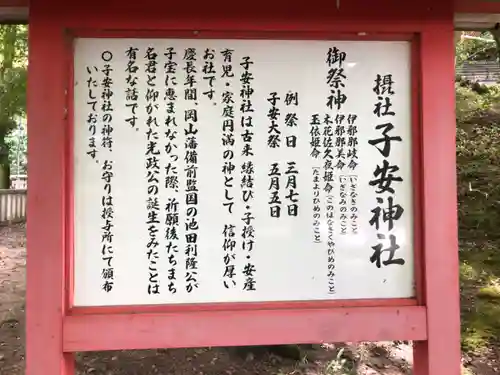 摂社 子安神社
御祭神
伊邪那岐命 [いざなぎのみこと]
伊邪那美命 [いざなみのみこと]
木花佐久夜姫命 [このはなさくやひめのみこと]
玉依姫命 [たまよりひめのみこと]
例祭日 三月七日
子安大祭 五月五日
子安神社は古来 縁結び・子授け・安産
育児・家庭円満の神として 信仰が厚い
お社です。
慶長年間、岡山藩備前監国の池田利隆公が
子宝に恵まれなかった際、祈願後たちまち
名君と仰がれた光政公の誕生をみたことは
有名な話です。
〇子安神社の神符、お守りは授与所にて頒布
いたしております。